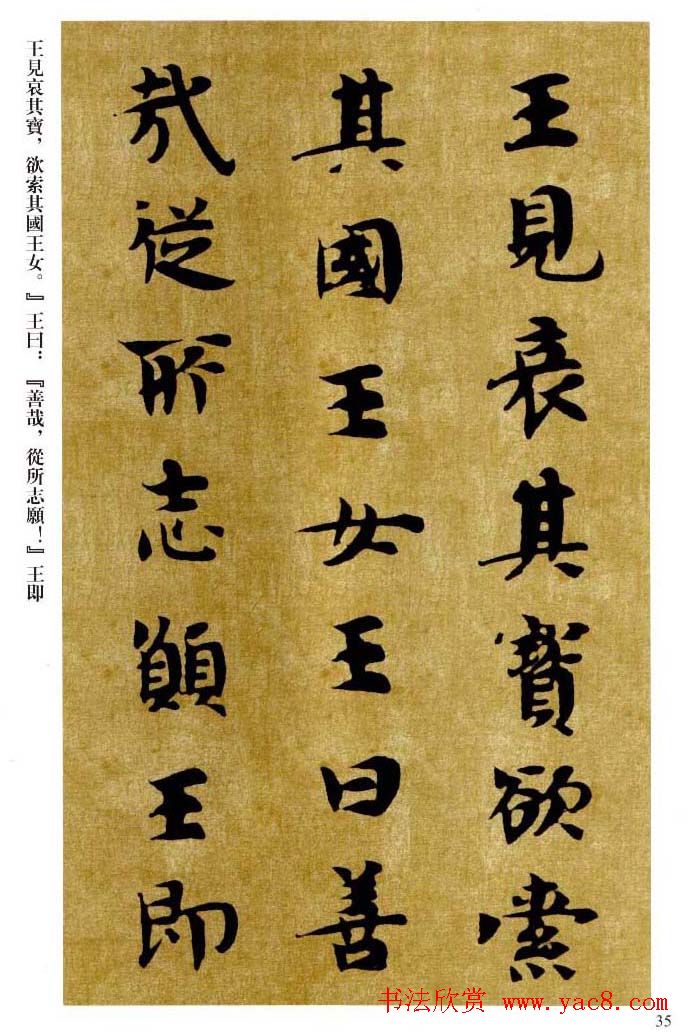 王見哀其寶欲索
其國王女王曰善
哉従所志願王即
王見哀其寶，欲索其國王女。』王曰：『善哉，從所志願！』王即
书法欣赏 www.yac8.com
35